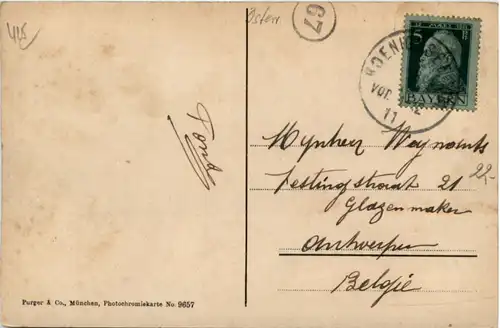 Österr
67
5
BAYERN
VOR
11
Tony
Mynheer Weynants
Vestingstraat 21
Glazenmaker
Antwerpen
België
22,-
Purger & Co., München, Photochromiekarte No. 9657